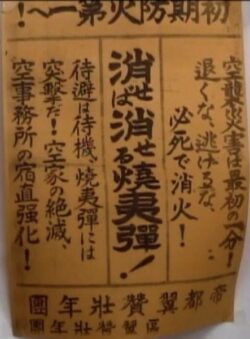 初期防火第一へ！
空襲災害は最初の一分！
退くな、逃げるな、
必死で消火！
消せば消せる燒夷彈！
待避は待機、燒夷彈には
突撃だ！空家の絶滅、
空事務所の宿直強化！
帝都翼贊壯年團
區翼贊壯年團